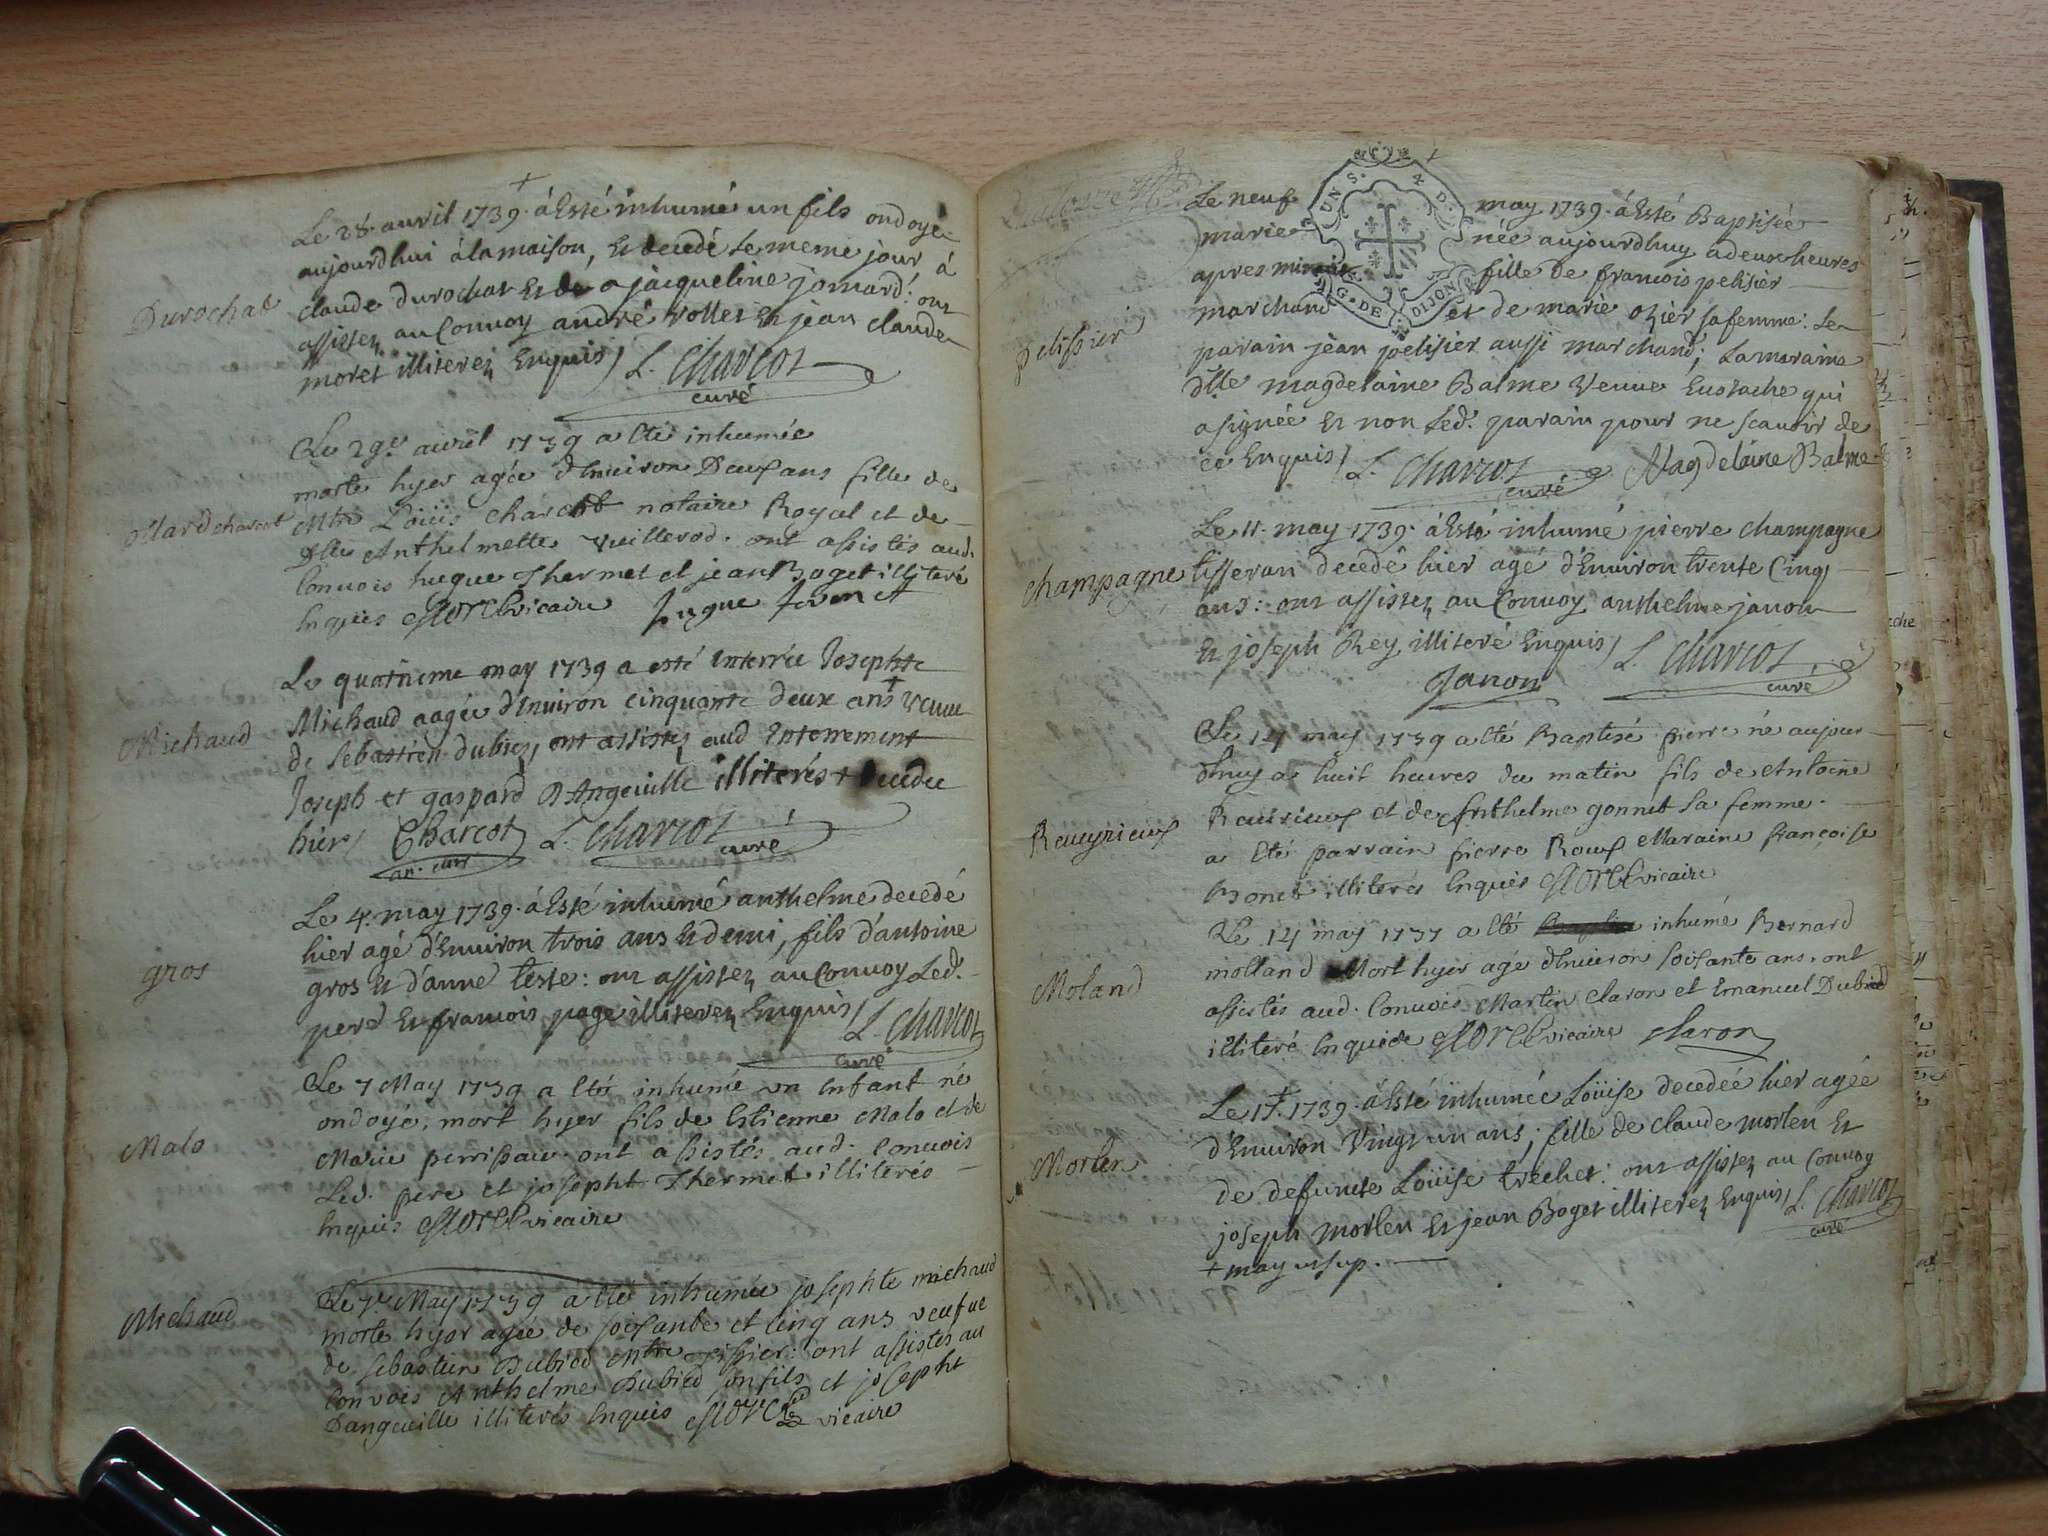 Le 28. avril 1739. á Esté inhumé un fils ondoyé
aujourdhui á la maison, Et decedé le meme jour á
Durochat
claude durochat Et de a jacqueline jomard: ont
assistez au Convoy andré rollet Et jean claude
moret illiterez Enquis / L. Charcot
curé
Le 29.e avril 1739 a Eté inhumée
morte hyer agée d'Environ Deux ans fille de
Mard charcot
Mtre Loüis charcot notaire Royal et de
Dlle Anthelmette Vuillerod. ont assistés aud.
Convois hugue Thermet et jean Boget illiteré
Enquis vicaire hugue termet
Le quatrieme may 1739 a esté Interrée Josephte
Michaud
Michaud aagée d'Environ cinquante deux ans + veuve
de Sebastien dubiez, ont assistez aud Enterrement
Joseph et gaspard D'Angeville illiterés + decedee
hier / Charcot L. Charcot
an. curé curé
Le 4. may 1739. á Esté inhumé anthelme decedé
hier agé d'Environ trois ans Et demi, fils d'antoine
gros
gros Et d'anne teste: ont assistez au Convoy Led.
pere Et francois page illiterez Enquis / L. Charcot
curé
Le 7 May 1739 a Eté inhumé un Enfant né
ondoyé, mort hyer fils de Estienne Malo et de
Malo
Marie perrissau. ont assistés aud. Convois
Led. pere et josepht Thermet illiterés
Enquis vicaire
Le 7.e May 1739 a Eté inhumée josephte michaud
Michaud
morte hyer agée de soixante et Cinq ans veufve
de sebastien Dubied Mtre : ont assistés au
Convois Anthelme Dubied son fils et josepht
Dangeville illiterés Enquis vicaire
UN S. 4 D.
G. DE DIJON
Le neuf may 1739. á Esté Baptisée
marie née aujourdhuy a deux heures
apres minuit fille de francois pelisier
Pelissier
marchand et de marie ozier sa femme: Le
parain jean pelisier aussi marchand; La maraine
dlle magdelaine Balme veuve Eustache qui
a signée Et non Led. parain pour ne scavoir de
ce Enquis / L. Charcot Magdelaine Balme
curé
Le 11. may 1739. á Esté inhumé pierre champagne
champagne
tisseran decedé hier agé d'Environ trente Cinq
ans: ont assistez au Convoy anthelme janon
Et joseph Rey illiteré Enquis / L. Charcot
Janon curé
Le 14 may 1739 a Eté Baptisé pierre né aujour-
dhuy a huit heures du matin fils de Antoine
Reveyrieux
Reveirieux et de Anthelme gonnet sa femme.
a Eté parrain pierre Roux Maraine francoise
Bonet illiterés Enquis vicaire
Le 14 may 1737 a Eté inhumé Bernard
Moland
molland Mort hyer agé d'Environ soixante ans. ont
assistés aud. Convois Martin Claron et Emanuel Dubied
illiteré Enquis de vicaire Claron
Le 17. + 1739. á Esté inhumée Loüise decedée hier agée
d'Environ Vingt un ans; fille de claude morlen Et
Morlen
de defuncte Loüise trechet: ont assistez au Convoy
joseph morlen Et jean Boget illiterez Enquis / L. Charcot
curé
+ may ut sup.